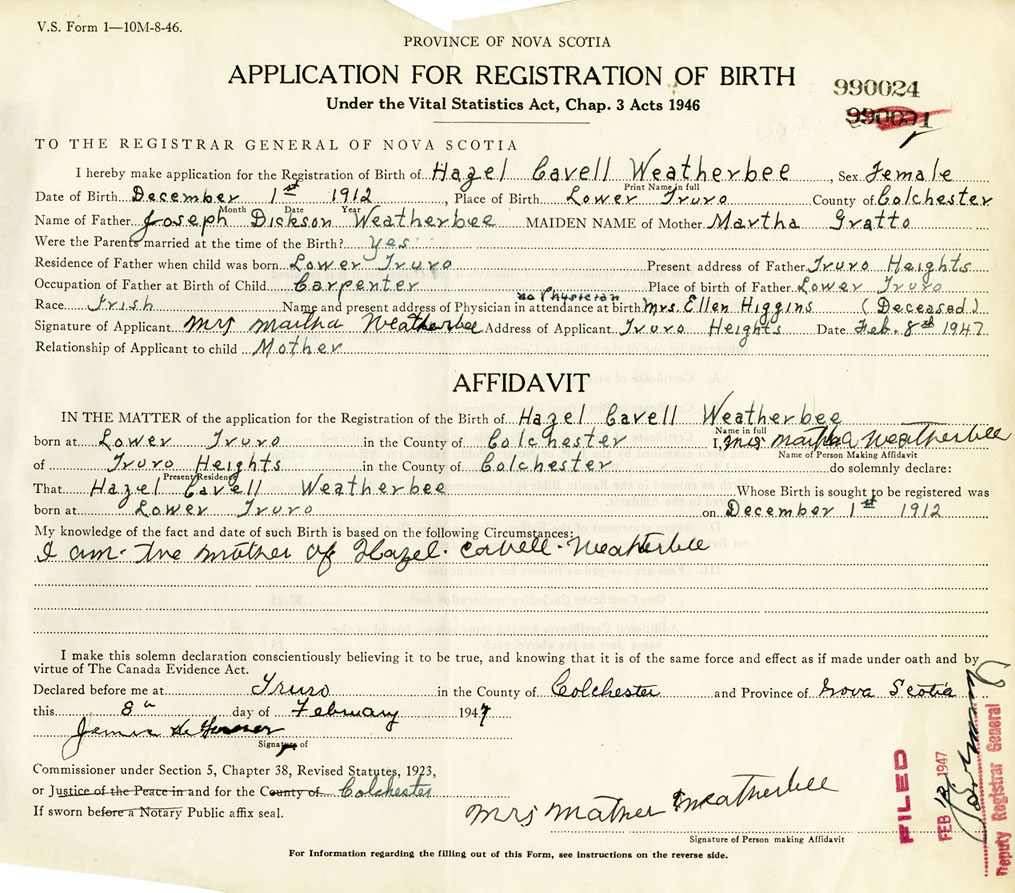 V.S. Form 1—10M-8-46.
PROVINCE OF NOVA SCOTIA
APPLICATION FOR REGISTRATION OF BIRTH
990024
Under the Vital Statistics Act, Chap. 3 Acts 1946
TO THE REGISTRAR GENERAL OF NOVA SCOTIA
I hereby make application for the Registration of Birth of Hazel Cavell Weatherbee, Sex Female
Print Name in full
Date of Birth December 1st 1912, Place of Birth Lower Truro County of Colchester
Month Date Year
Name of Father Joseph Dickson Weatherbee MAIDEN NAME of Mother Martha Gratto
Were the Parents married at the time of the Birth? Yes
Residence of Father when child was born Lower Truro Present address of Father Truro Heights
Occupation of Father at Birth of Child Carpenter Place of birth of Father Lower Truro
no Physician
Race Irish Name and present address of Physician in attendance at birth Mrs. Ellen Higgins (Deceased)
Signature of Applicant Mrs Martha Weatherbee Address of Applicant Truro Heights Date Feb. 8th 1947
Relationship of Applicant to child Mother
AFFIDAVIT
IN THE MATTER of the application for the Registration of the Birth of Hazel Cavell Weatherbee
Name in full
born at Lower Truro in the County of Colchester I, Mrs Martha Weatherbee
Name of Person Making Affidavit
of Truro Heights in the County of Colchester do solemnly declare:
Present Residence
That Hazel Cavell Weatherbee Whose Birth is sought to be registered was
born at Lower Truro on December 1st 1912
My knowledge of the fact and date of such Birth is based on the following Circumstances:
I am the mother of Hazel Cavell Weatherbee
I make this solemn declaration conscientiously believing it to be true, and knowing that it is of the same force and effect as if made under oath and by
virtue of The Canada Evidence Act.
Declared before me at Truro in the County of Colchester and Province of Nova Scotia
this 8th day of February 1947
James
Signature of
Commissioner under Section 5, Chapter 38, Revised Statutes, 1923,
or Justice of the Peace in and for the County of Colchester
If sworn before a Notary Public affix seal.
Mrs Weatherbee
Signature of Person making Affidavit
For Information regarding the filling out of this Form, see instructions on the reverse side.
FILED
FEB 12 1947
Deputy Registrar General